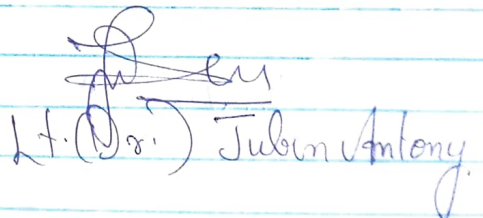 Lt. (Dr.) Jubin Antony